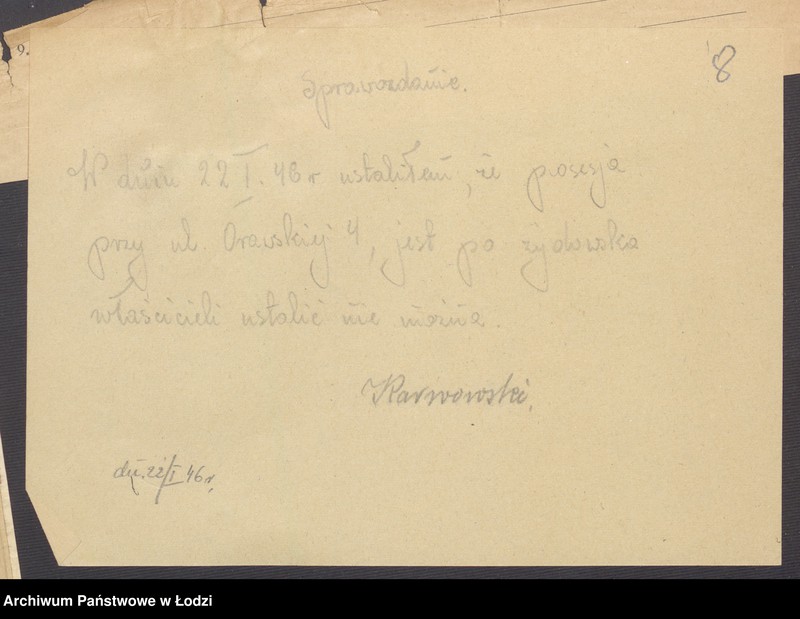 9.
8
Sprawozdanie.
W dniu 22 I. 46 r ustaliłem, że posesja
przy ul. Orawskiej 4, jest po żydowska
właścicieli ustalić nie można.
Karwowski.
dn. 22/I 46 r,
Archiwum Państwowe w Łodzi